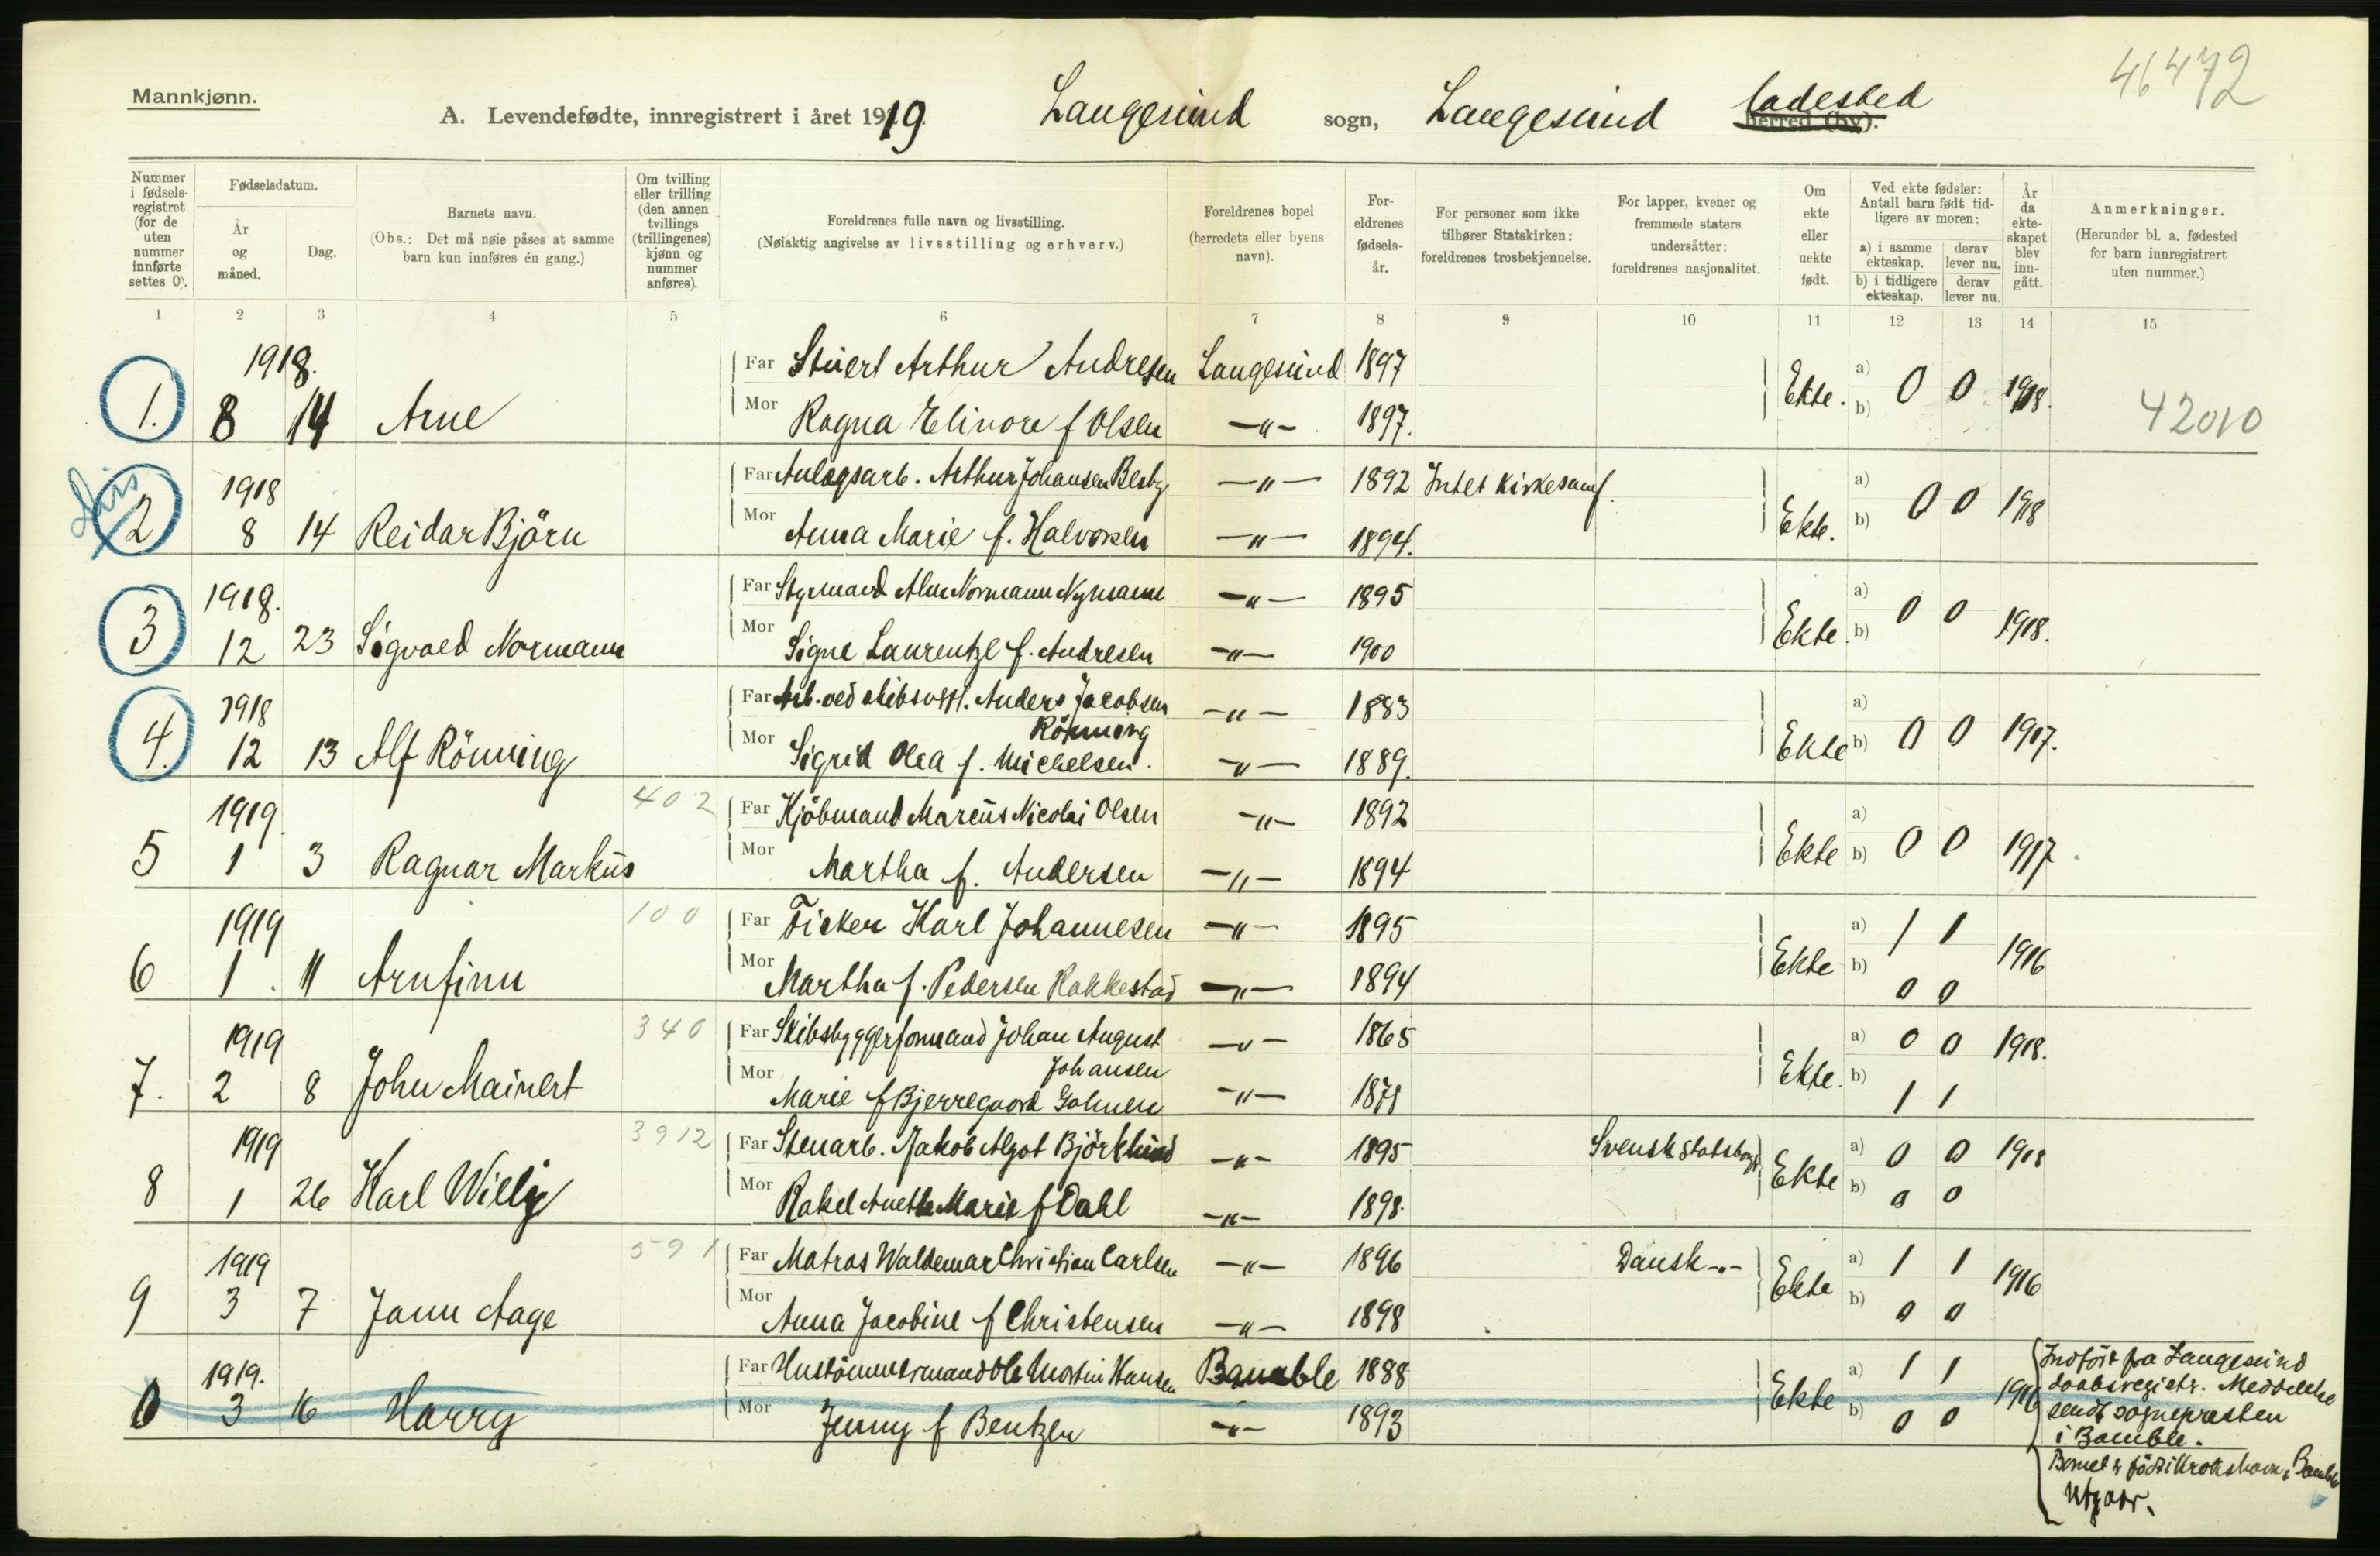 46472
Mannkjønn.
A. Levendefødte, innregistrert i året 1919. Langesund sogn, Langesund ladested herred (by).
Nummer i fødselsregistret (for de uten nummer innførte settes 0).
Fødselsdatum.
År og måned.
Dag.
Barnets navn.
(Obs.: Det må nøie påses at samme barn kun innføres én gang.)
Om tvilling eller trilling (den annen tvillings (trillingenes) kjønn og nummer anføres).
Foreldrenes fulle navn og livsstilling.
(Nøiaktig angivelse av livsstilling og erhverv.)
Foreldrenes bopel (herredets eller byens navn).
Foreldrenes fødselsår.
For personer som ikke tilhører Statskirken: foreldrenes trosbekjennelse.
For lapper, kvener og fremmede staters undersåtter: foreldrenes nasjonalitet.
Om ekte eller uekte født.
Ved ekte fødsler: Antall barn født tidligere av moren:
a) i samme ekteskap. derav lever nu.
b) i tidligere ekteskap. derav lever nu.
År da ekteskapet blev inngått.
Anmerkninger.
(Herunder bl. a. fødested for barn innregistrert uten nummer.)
1 2 3 4 5 6 7 8 9 10 11 12 13 14 15
1918. Far Stuert Arthur Andresen Langesund 1897
1. 8 14 Arne Mor Ragna Elinore f Olsen —"— 1897. Ekte. a) b) 0 0 1918. 42010
1918 Far Anlægsarb. Arthur Johansen Besby —"— 1892 Intet Kirkesamf.
2 8 14 Reidar Björn Mor Anna Marie f. Halvorsen —"— 1894. Ekte. a) b) 0 0 1918
1918. Far Styrmand Alm Normann Nymann —"— 1895
3 12 23 Sigvald Normann Mor Signe Laurentze f. Andresen —"— 1900 Ekte. a) b) 0 0 1918.
1918 Far Arb. ved skibsverft. Anders Jacobsen Rönning —"— 1883
4. 12 13 Alf Rönning Mor Sigrid Olea f. Michelsen. —"— 1889. Ekte a) b) 0 0 1917.
1919. 402 Far Kjöbmand Marcus Nicolai Olsen —"— 1892
5 1 3 Ragnar Markus Mor Martha f. Andersen —"— 1894 Ekte a) b) 0 0 1917.
1919 100 Far Ticker Karl Johannesen —"— 1895 a) 1 1
6 1. 11 Arnfinn Mor Martha f. Pedersen Rakkestad —"— 1894 Ekte b) 0 0 1916
1919 340 Far Skibsbyggerformand Johan August Johansen —"— 1865 a) 0 0 1918.
7. 2 8 John Mainert Mor Marie f Bjerregaard —"— 1878 Ekte. b) 1 1
1919 3912 Far Stenarb. Jakob Algot Björklund —"— 1895 Svensk Statsborg. a) 0 0 1918
8 1 26 Karl Willy Mor Rakel Anette Marie f Dahl —"— 1898. Ekte b) 0 0
1919 591 Far Matros Waldemar Christian Carlsen —"— 1896 Dansk —"— a) 1 1 1916
9 3 7 Jann Aage Mor Anna Jacobine f Christensen —"— 1898 Ekte b) 0 0
1919. Far Hustömmermand Ole Martin Hansen Bamble 1888 a) 1 1
0 3 16 Harry Mor Jenny f Bentzen —"— 1893 Ekte b) 0 0 1916
Indfört fra Langesund
daabsregistr. Meddelelse
sendt sognepresten
i Bamble.
Barnet er född i Krokshavn i Bamble
Utgaar.